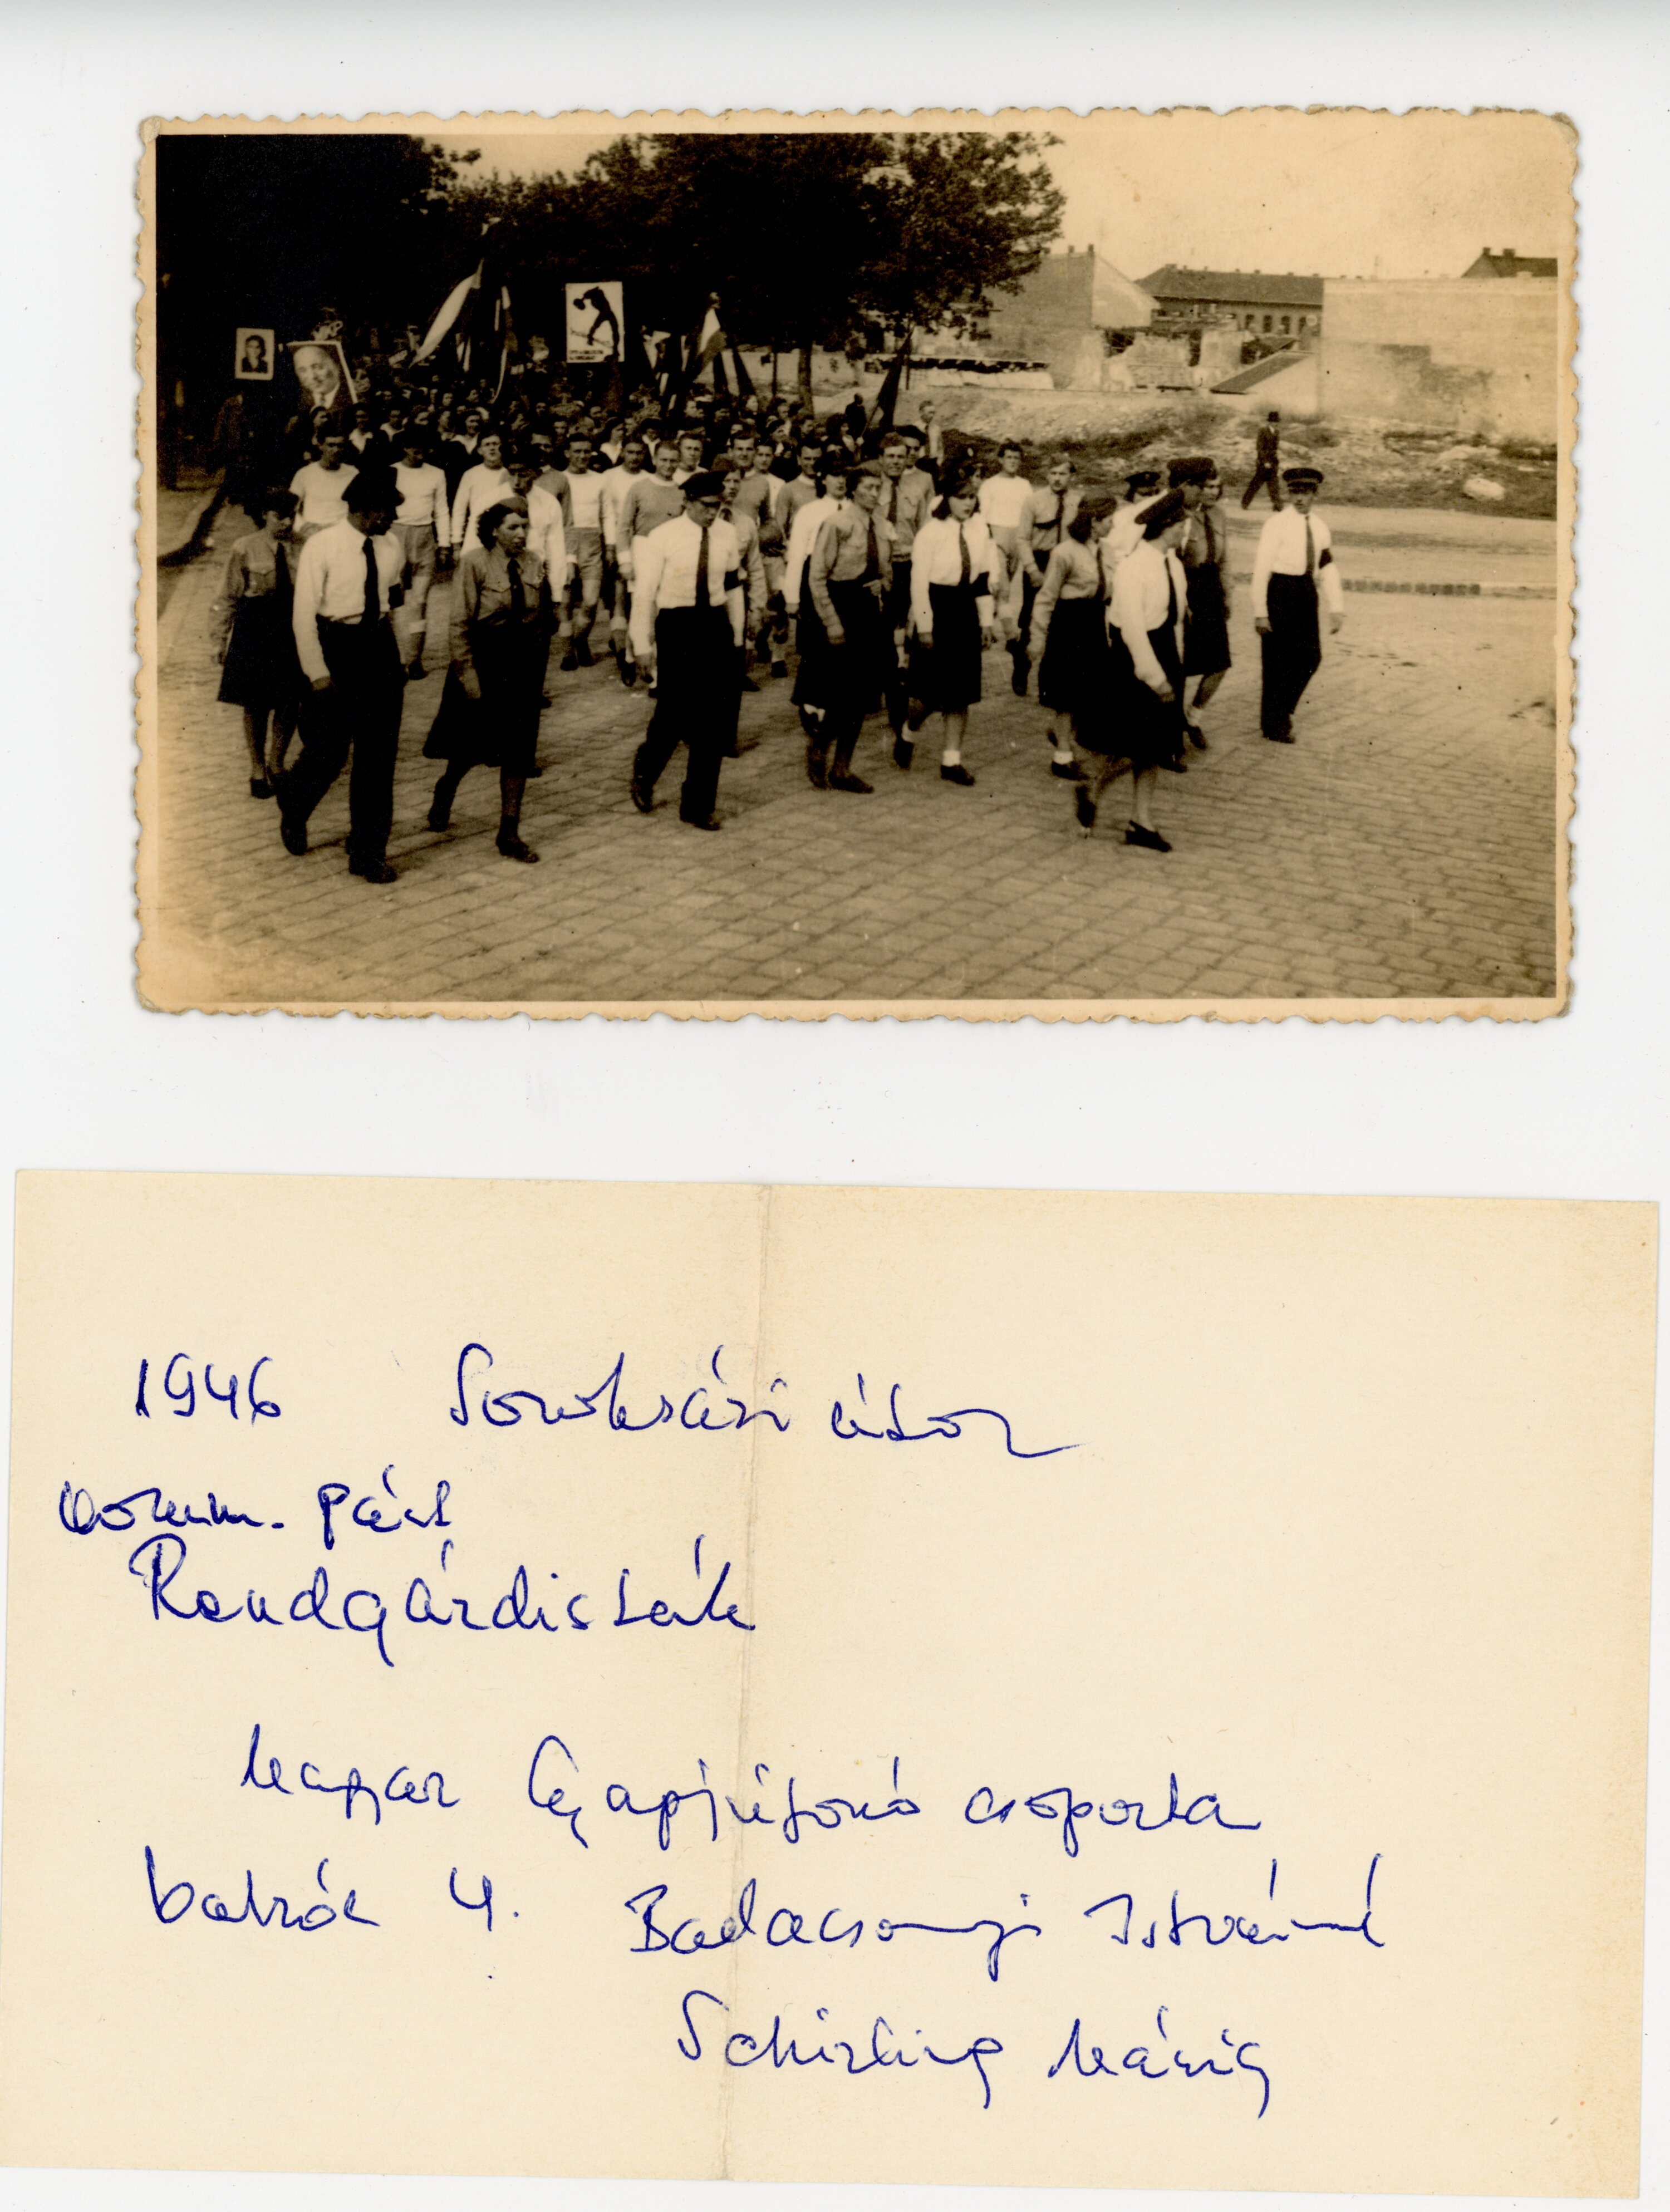 1946 Soroksári úton
komm. párt
Rendgárdisták
Magyar Gyapjúfonó csoporta
balról 4. Badacsonyi Istvánné
Schirling Mária